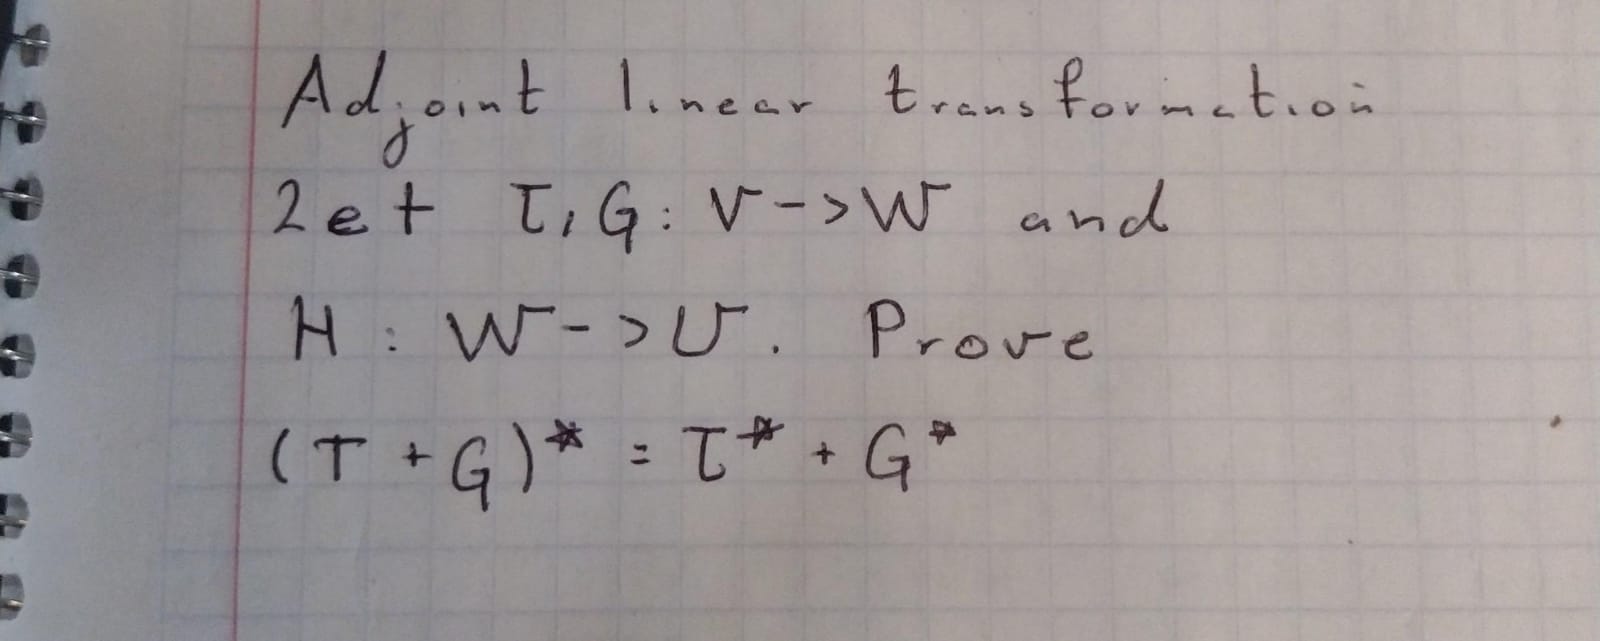 Adjoint linear transformation
Let T, G: V -> W and
H: W -> U. Prove
(T + G)* = T* + G*